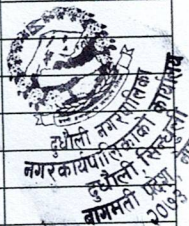 दुधौली नगरपालिका
नगर कार्यपालिकाको कार्यालय
दुधौली, सिन्धुली
बागमती प्रदेश
२०७३